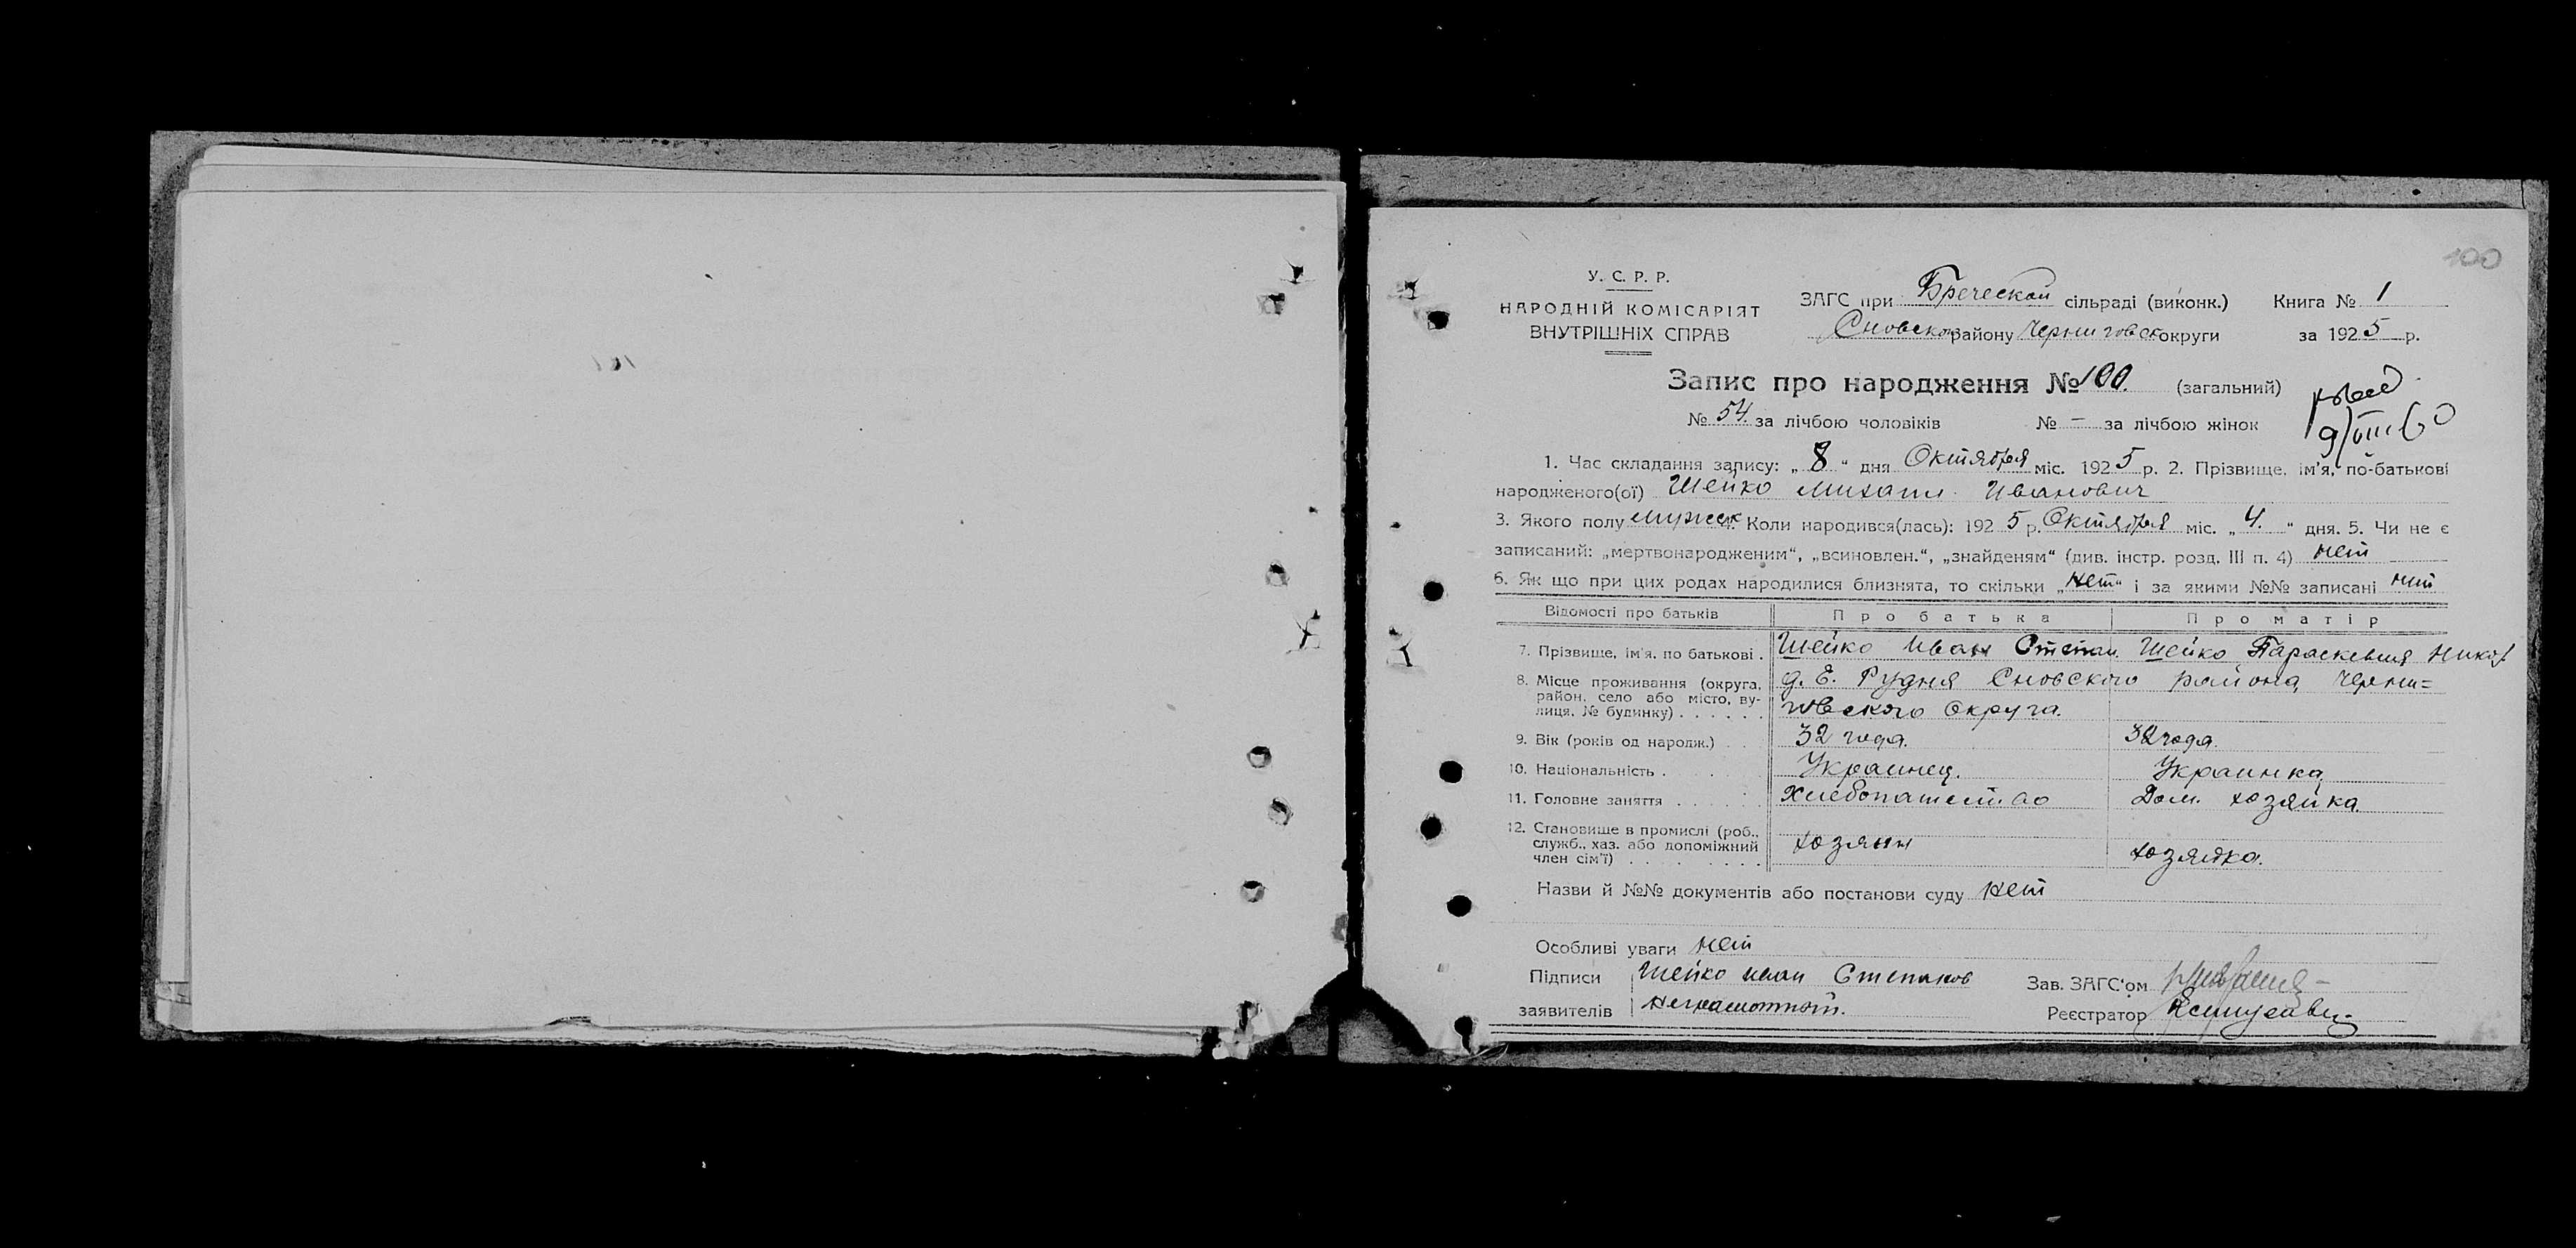 100
У. С. Р. Р.
НАРОДНІЙ КОМІСАРІЯТ
ВНУТРІШНІХ СПРАВ
ЗАГС при Бреческой сільраді (виконк.) Книга № 1
Сновском району Черниговск округи за 1925 р.
Запис про народження № 100. (загальний)
№ 54. за лічбою чоловіків № — за лічбою жінок
1. Час складання запису: „ 8 “ дня Октября міс. 1925 р. 2. Прізвище, ім'я, по-батькові
народженого(ої) Шейко Михаил Иванович
3. Якого полу мужск 4. Коли народився(лась): 1925 р. Октября міс. „ 4. “ дня. 5. Чи не є
записаний: „мертвонародженим“, „всиновлен.“, „знайденям“ (див. інстр. розд. III п. 4) нет
6. Як що при цих родах народилися близнята, то скільки „нет“ і за якими №№ записані нет
Відомості про батьків Про батька Про матір
7. Прізвище, ім'я, по батькові . Шейко Иван Степан. Шейко Параскевия Никол
8. Місце проживання (округа, район, село або місто, вулиця, № будинку) . . . . . . д. Е. Рудня Сновского района, Черни=
говского Округа.
9. Вік (років од народж.) . . 32 года. 32 года.
10. Національність . . . . . Украинец. Украинка
11. Головне заняття . . . . . . Хлебопашество Дом. хозяйка
12. Становище в промислі (роб., служб., хаз. або допоміжний член сім'ї) . . . . . . . . . хозяин хозяйка.
Назви й №№ документів або постанови суду нет
Особливі уваги нет
Підписи Шейко Иван Степанов Зав. ЗАГС'ом
заявителів неграмотный. Реєстратор